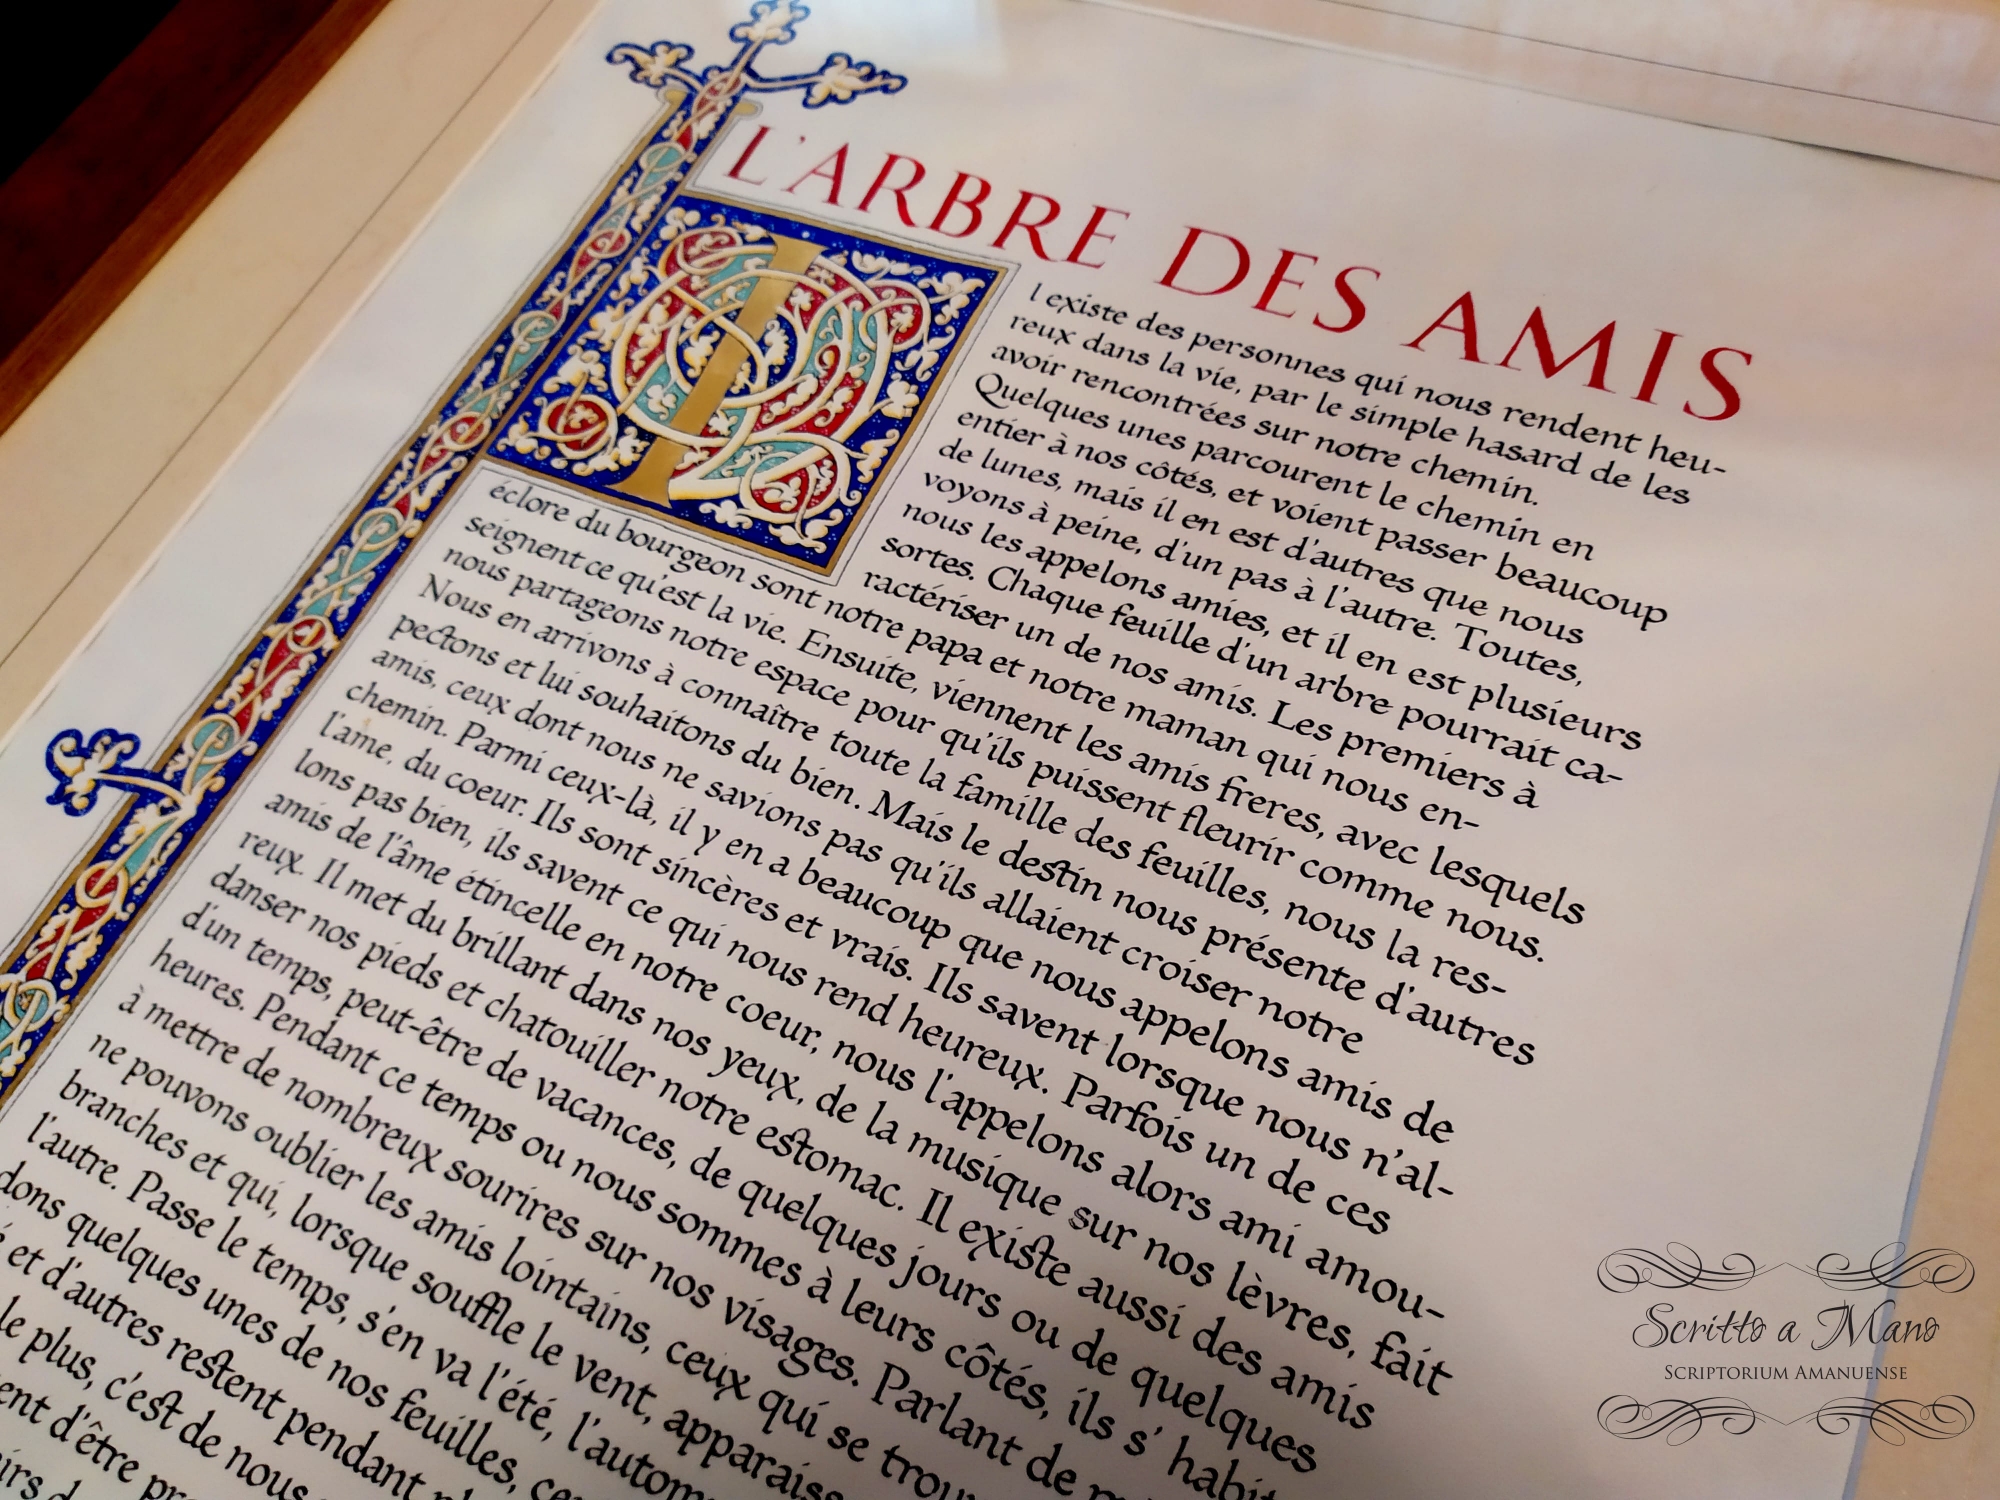 L'ARBRE DES AMIS
Il existe des personnes qui nous rendent heu-
reux dans la vie, par le simple hasard de les
avoir rencontrées sur notre chemin.
Quelques unes parcourent le chemin en
entier à nos côtés, et voient passer beaucoup
de lunes, mais il en est d'autres que nous
voyons à peine, d'un pas à l'autre. Toutes,
nous les appelons amies, et il en est plusieurs
sortes. Chaque feuille d'un arbre pourrait ca-
ractériser un de nos amis. Les premiers à
éclore du bourgeon sont notre papa et notre maman qui nous en-
seignent ce qu'est la vie. Ensuite, viennent les amis freres, avec lesquels
nous partageons notre espace pour qu'ils puissent fleurir comme nous.
Nous en arrivons à connaître toute la famille des feuilles, nous la res-
pectons et lui souhaitons du bien. Mais le destin nous présente d'autres
amis, ceux dont nous ne savions pas qu'ils allaient croiser notre
chemin. Parmi ceux-là, il y en a beaucoup que nous appelons amis de
l'ame, du coeur. Ils sont sincères et vrais. Ils savent lorsque nous n'al-
lons pas bien, ils savent ce qui nous rend heureux. Parfois un de ces
amis de l'âme étincelle en notre coeur, nous l'appelons alors ami amou-
reux. Il met du brillant dans nos yeux, de la musique sur nos lèvres, fait
danser nos pieds et chatouiller notre estomac. Il existe aussi des amis
d'un temps, peut-être de vacances, de quelques jours ou de quelques
heures. Pendant ce temps ou nous sommes à leurs côtés, ils s' habit
à mettre de nombreux sourires sur nos visages. Parlant de
ne pouvons oublier les amis lointains, ceux qui se trou
branches et qui, lorsque souffle le vent, apparaiss
l'autre. Passe le temps, s'en va l'été, l'autom
dons quelques unes de nos feuilles, ce
et d'autres restent pendant pl
le plus, c'est de nous
ent d'être pr
irs d
Scritto a Mano
SCRIPTORIUM AMANUENSE